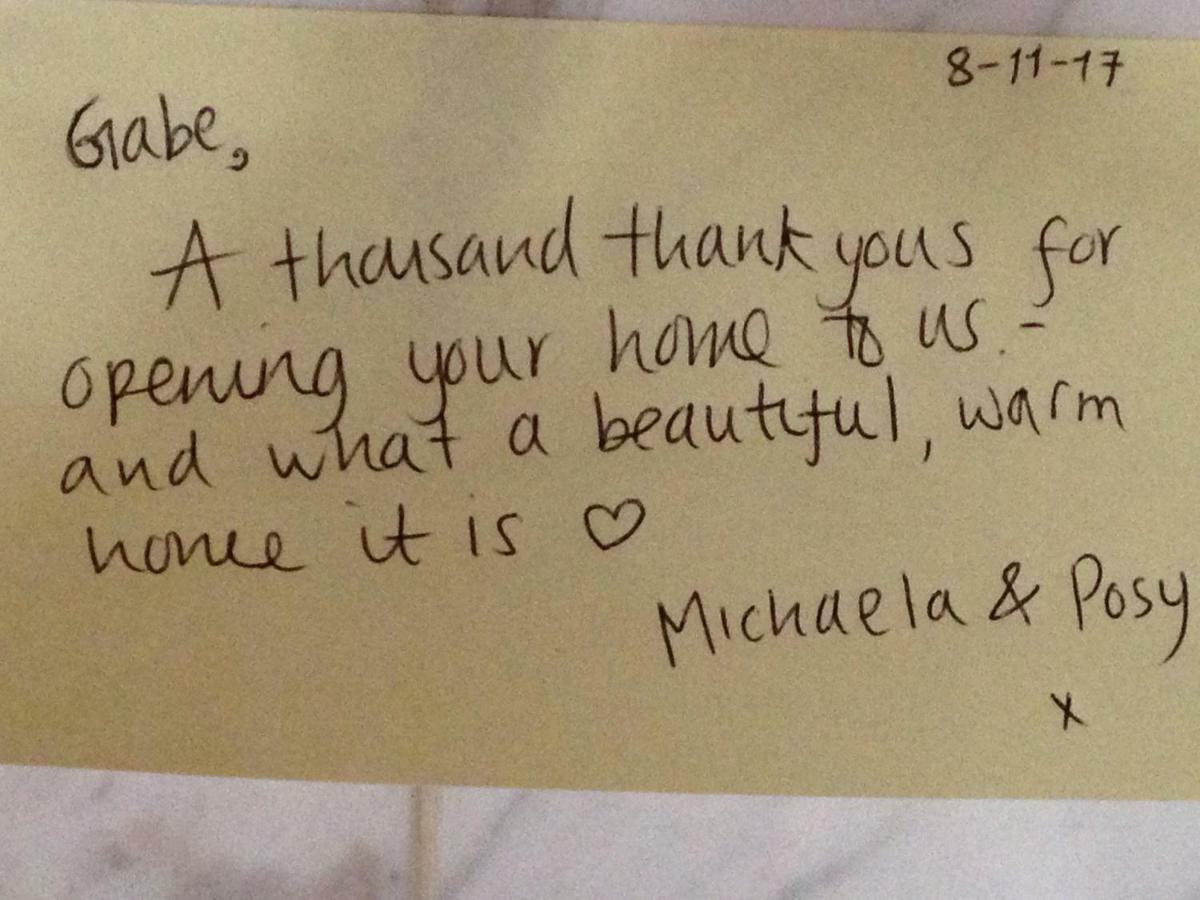 8-11-17
Gabe,
A thousand thank yous for
opening your home to us. -
and what a beautiful, warm
home it is ♡
Michaela & Posy
x